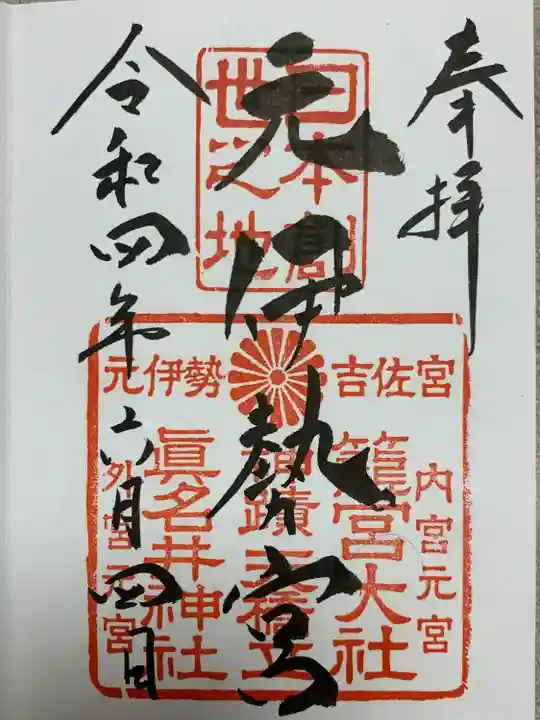 奉拝
元伊勢宮
令和四年六月四日
日本創
世之地
元伊勢 吉佐宮
内宮元宮
籠宮大社
神蹟天橋立
眞名井神社
外宮元宮